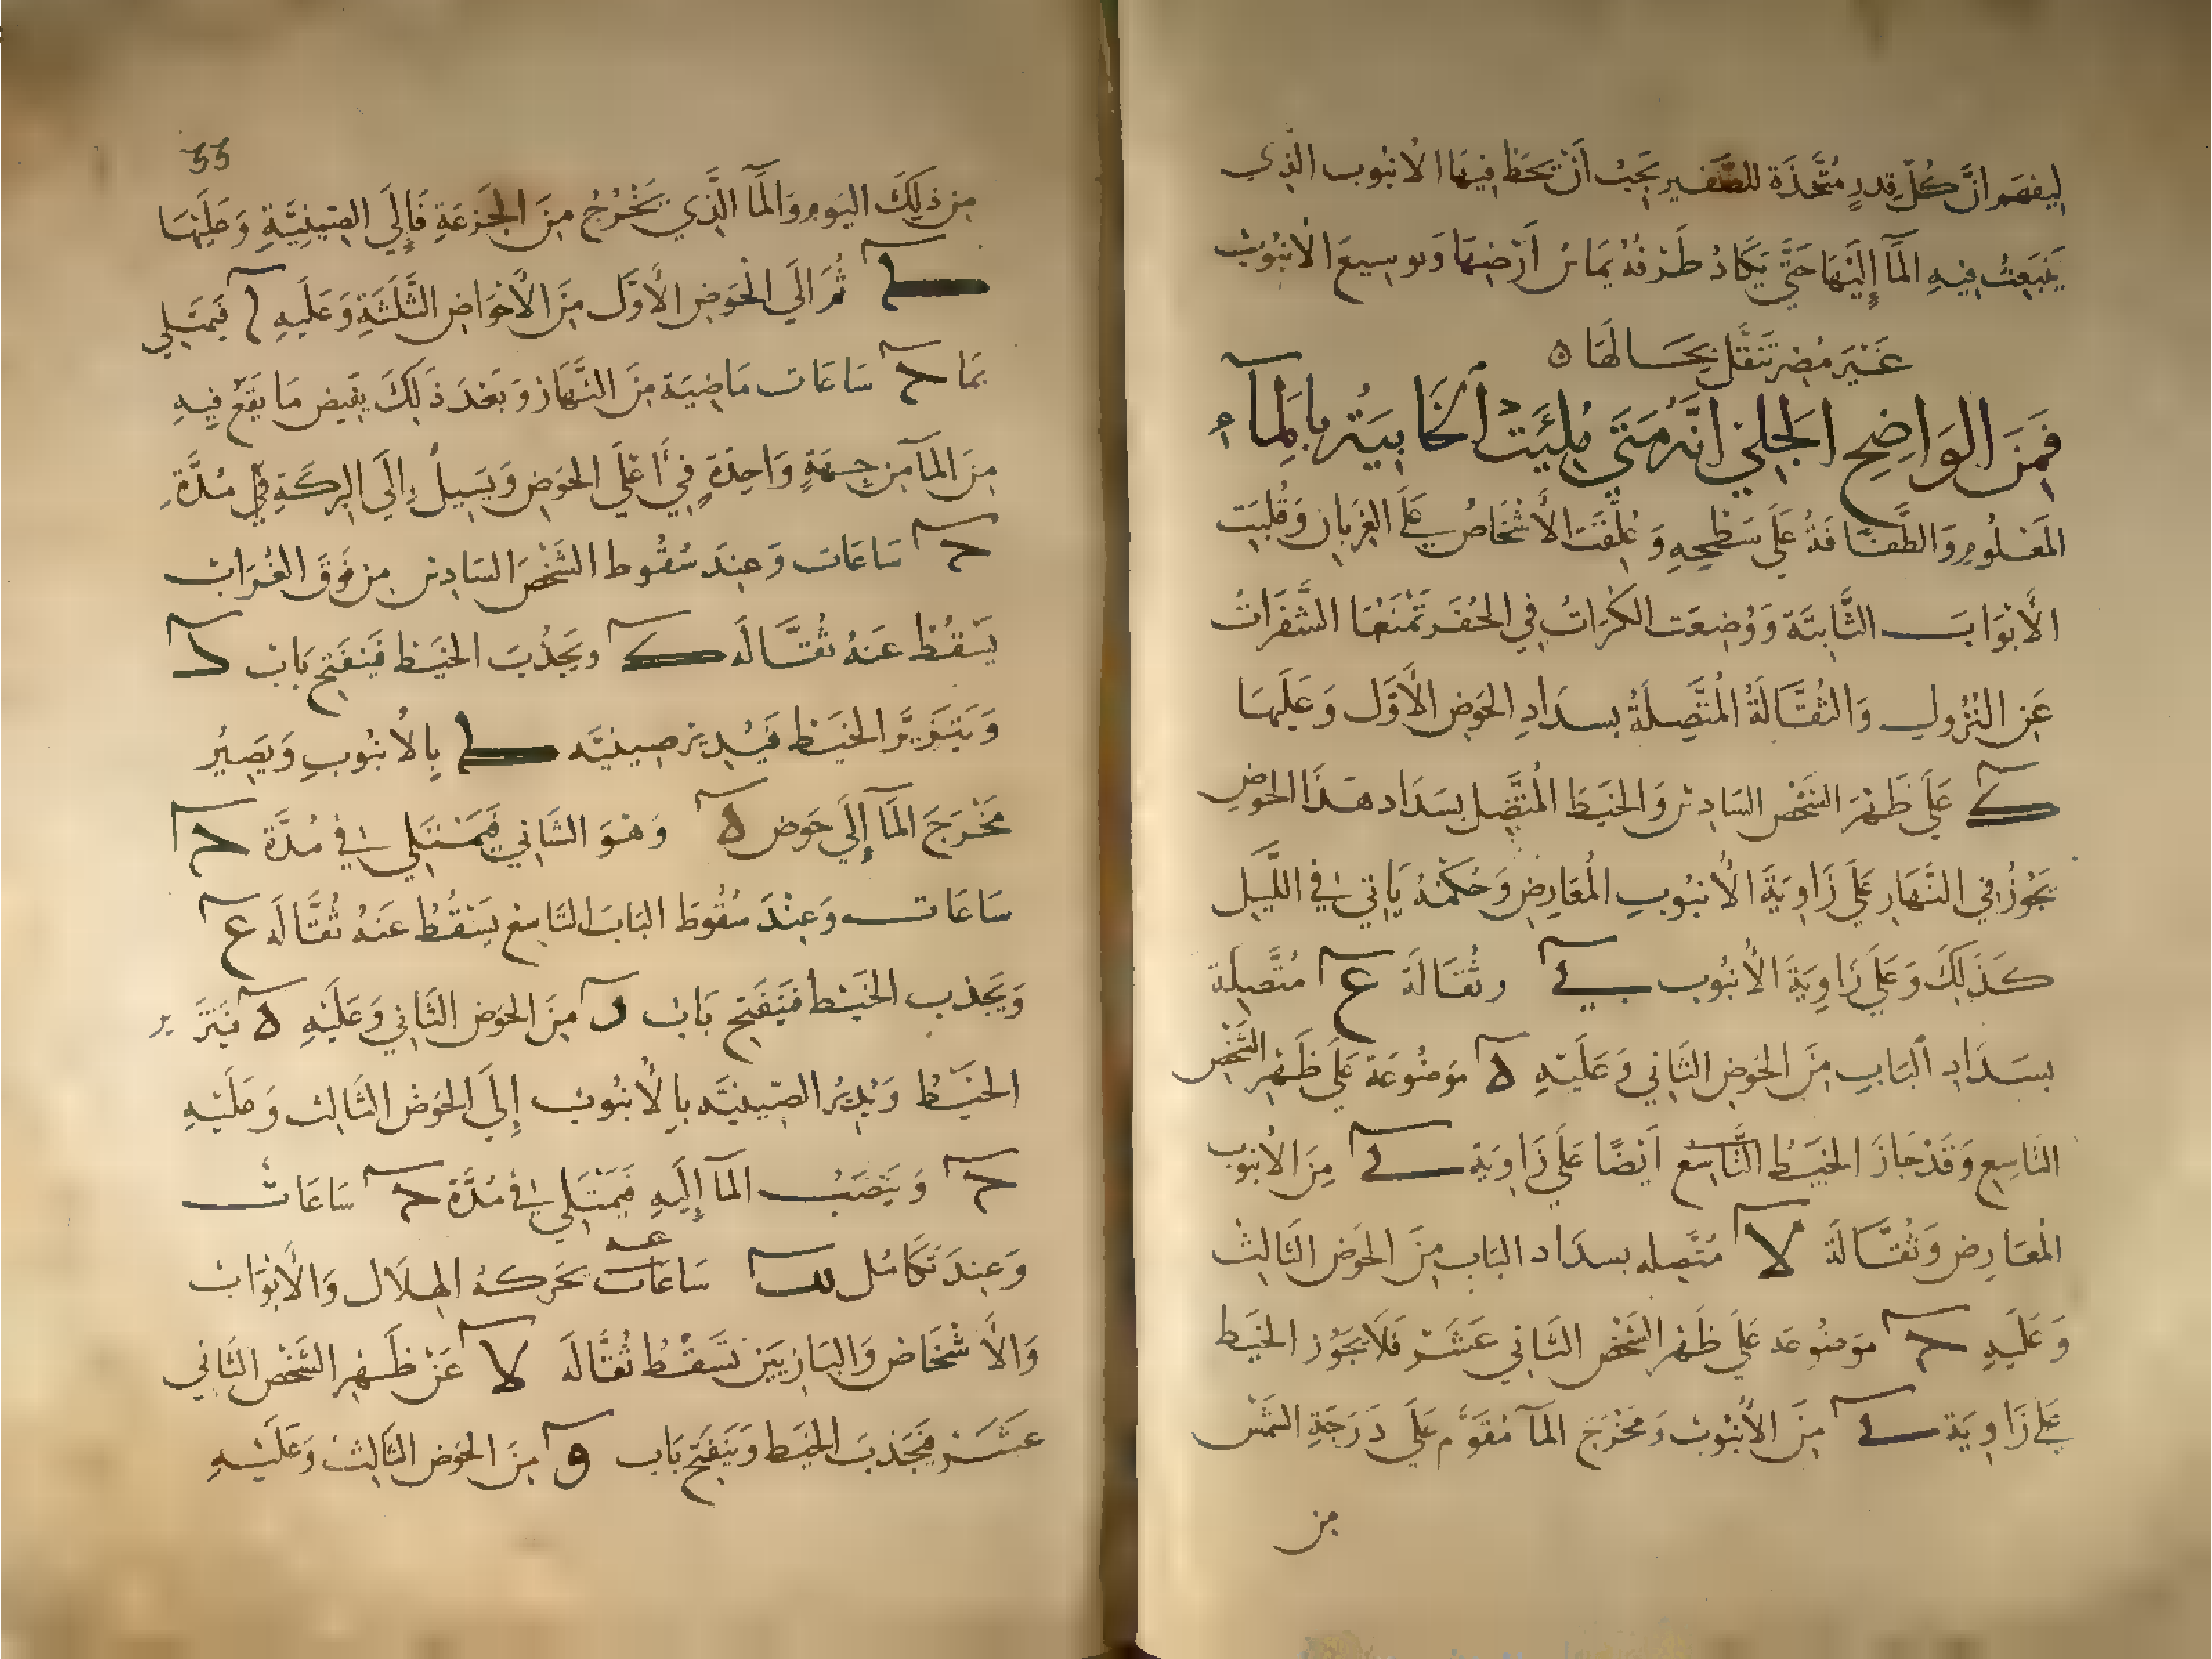 ليفهم انَّ كُلّ قدرٍ مُتَّخَذَة للصَّفير يَجِبُ أَنْ يحَط فِيهَا الأنبُوب الذِي
يَنبَعِثُ فِيهِ المَآ إِلَيْهَا حَتَّي يَكَادُ طَرْفهُ يُمَاسُ أَرْضِهَا وَتوسِيعَ الأنبُوبْ
غَيْرَ مُضِر تَنَقَّل بِحَالهَا ه
فَمِنَ الوَاضِحِ الجَلِيْ انَّهُ مَتَي مُلِيَتْ الخَابِيَةُ بِالمآءِ
المَعْلُومِ وَالطَّفَّافَةُ عَلَي سَطْحِهِ وَ عُلِّقَت الأَشْخَاصُ عَلَي الغِربان وَقُلبَت
الأَبْوَابَ الثَّابتَة وَوُضِعَت الكُرَاتُ فِي الحُفَر تَمْنَعُهَا الشَّفَرَاتُ
عَنِ النُزُولِ وَالثُقَّالَةُ المُتَّصِلَةُ بسدَادِ الحَوضِ الأَوَّل وَعَلَيهَا
ك عَلَي ظَهْرِ الشَخْصِ السَادِس وَالخَيط المُتَّصِل بسدَاد هَذَا الحَوضِ
يَجُوزُ فِي النَّهَارِ عَلَي زَاوِيَةَ الأنبُوبِ المُعَارِضِ وَحُكمُهُ يَاتِي فِي اللَّيل
كَذَلِكَ وَعَلَي زَاوِيَةَ الأنبُوب ي وثُقَالَة ع مُتَّصِلَة
بسدَادِ البَابِ مِنَ الحَوضِ الثَاني وَعَلَيْهِ ه مَوضُوعَة عَلَي ظَهْرِ الشَخْص
التَاسِع وَقَدْ جَازَ الخَيطُ التَّاسِع أَيْضًا عَلَي زَاوِيَة ي مِنَ الأنبُوب
المُعَارِض وَثُقَّالَة لا مُتَّصِله بسدَاد البَاب مِنَ الحَوضِ الثَالِث
وَعَلَيهِ ح مَوضُوعَه عَلَي ظَهْرِ الشَخْص الثَاني عَشَرْ فَلَا يَجُوْز الخَيط
عَلَي زَاوِيَة ي مِنَ الأنبُوب وَمَخْرَج المَآ مُقَوَّم عَلَي دَرَجَةِ الشَمْس
مِن
33
مِن ذَلِكَ اليَوم وَالمَآ الَّذِي يَخْرُجُ مِنَ الجَزعَةِ فَإِلَي الصِّينِيَّةِ وَعَلَيْهَا
ط ثُمَ الَي الحَوضِ الأَوَّل مِنَ الأَحْوَاضِ الثَّلَثَةِ وَعَلَيهِ فَيَمتَلِي
بمَا ح سَاعَات مَاضِيَة مِنَ النَّهَار وَبَعْدَ ذَلِكَ يَفِيض مَا يَقَعْ فِيهِ
مِنَ المآ مِن جِهَةٍ وَاحِدَةٍ فِي أَعْلَي الحَوضِ وَيَسِيلُ إِلَي البِركَةِ فِي مُدَّةِ
ح سَاعَات وَعِندَ سُقُوط الشَّخْصِ السَادِس مِن فَوقَ الغُرَاب
يَسْقُط عَنهُ ثُقَّالَه ك ويَجْذُبَ الخَيط فَينفَتِح بَابُ د
وَيَتَزَيَّر الخَيْط فَيُدِيرُ صِينِيَّه ط بِالأُنبُوبِ وَيَصِيرُ
مَخْرَجَ المَآ إِلَي حَوض ه وَهُوَ الثَاني فَيَمتَلِي في مُدَّة ح
سَاعَات وَعِنْدَ سُقُوط البَابَ التَاسِع يَسْقُطُ عَنهُ ثُقَّالَه ع
وَيَجْذب الخَيْط فَيَنفَتِح بَابُ ر مِنَ الحَوض الثَاني وَعَلَيْهِ ه فَيَتَزَير
الخَيْطُ وَيُدِيرُ الصِّينِيَّه بِالأُنبُوب إِلَي الحَوضِ الثَالِث وَعَلَيْهِ
ح وَيَنصَبُ المَآ إِلَيهِ فَيَمْتَلِي في مُدَّة ح سَاعَات
وَعِندَ تَكَامُل يب سَاعَات بحَرَكة الهِلَال وَالأَبْوَاب
وَالأَشْخَاص وَالبَازِيَين تَسْقُطُ ثُقَّالَه لا عَن ظَهْرِ الشَخْص الثَانِي
عَشَر فَيَجْذبَ الخَيط وَيَنفَتِح بَاب و مِنَ الحَوض الثَالِث وَعَلَيْهِ